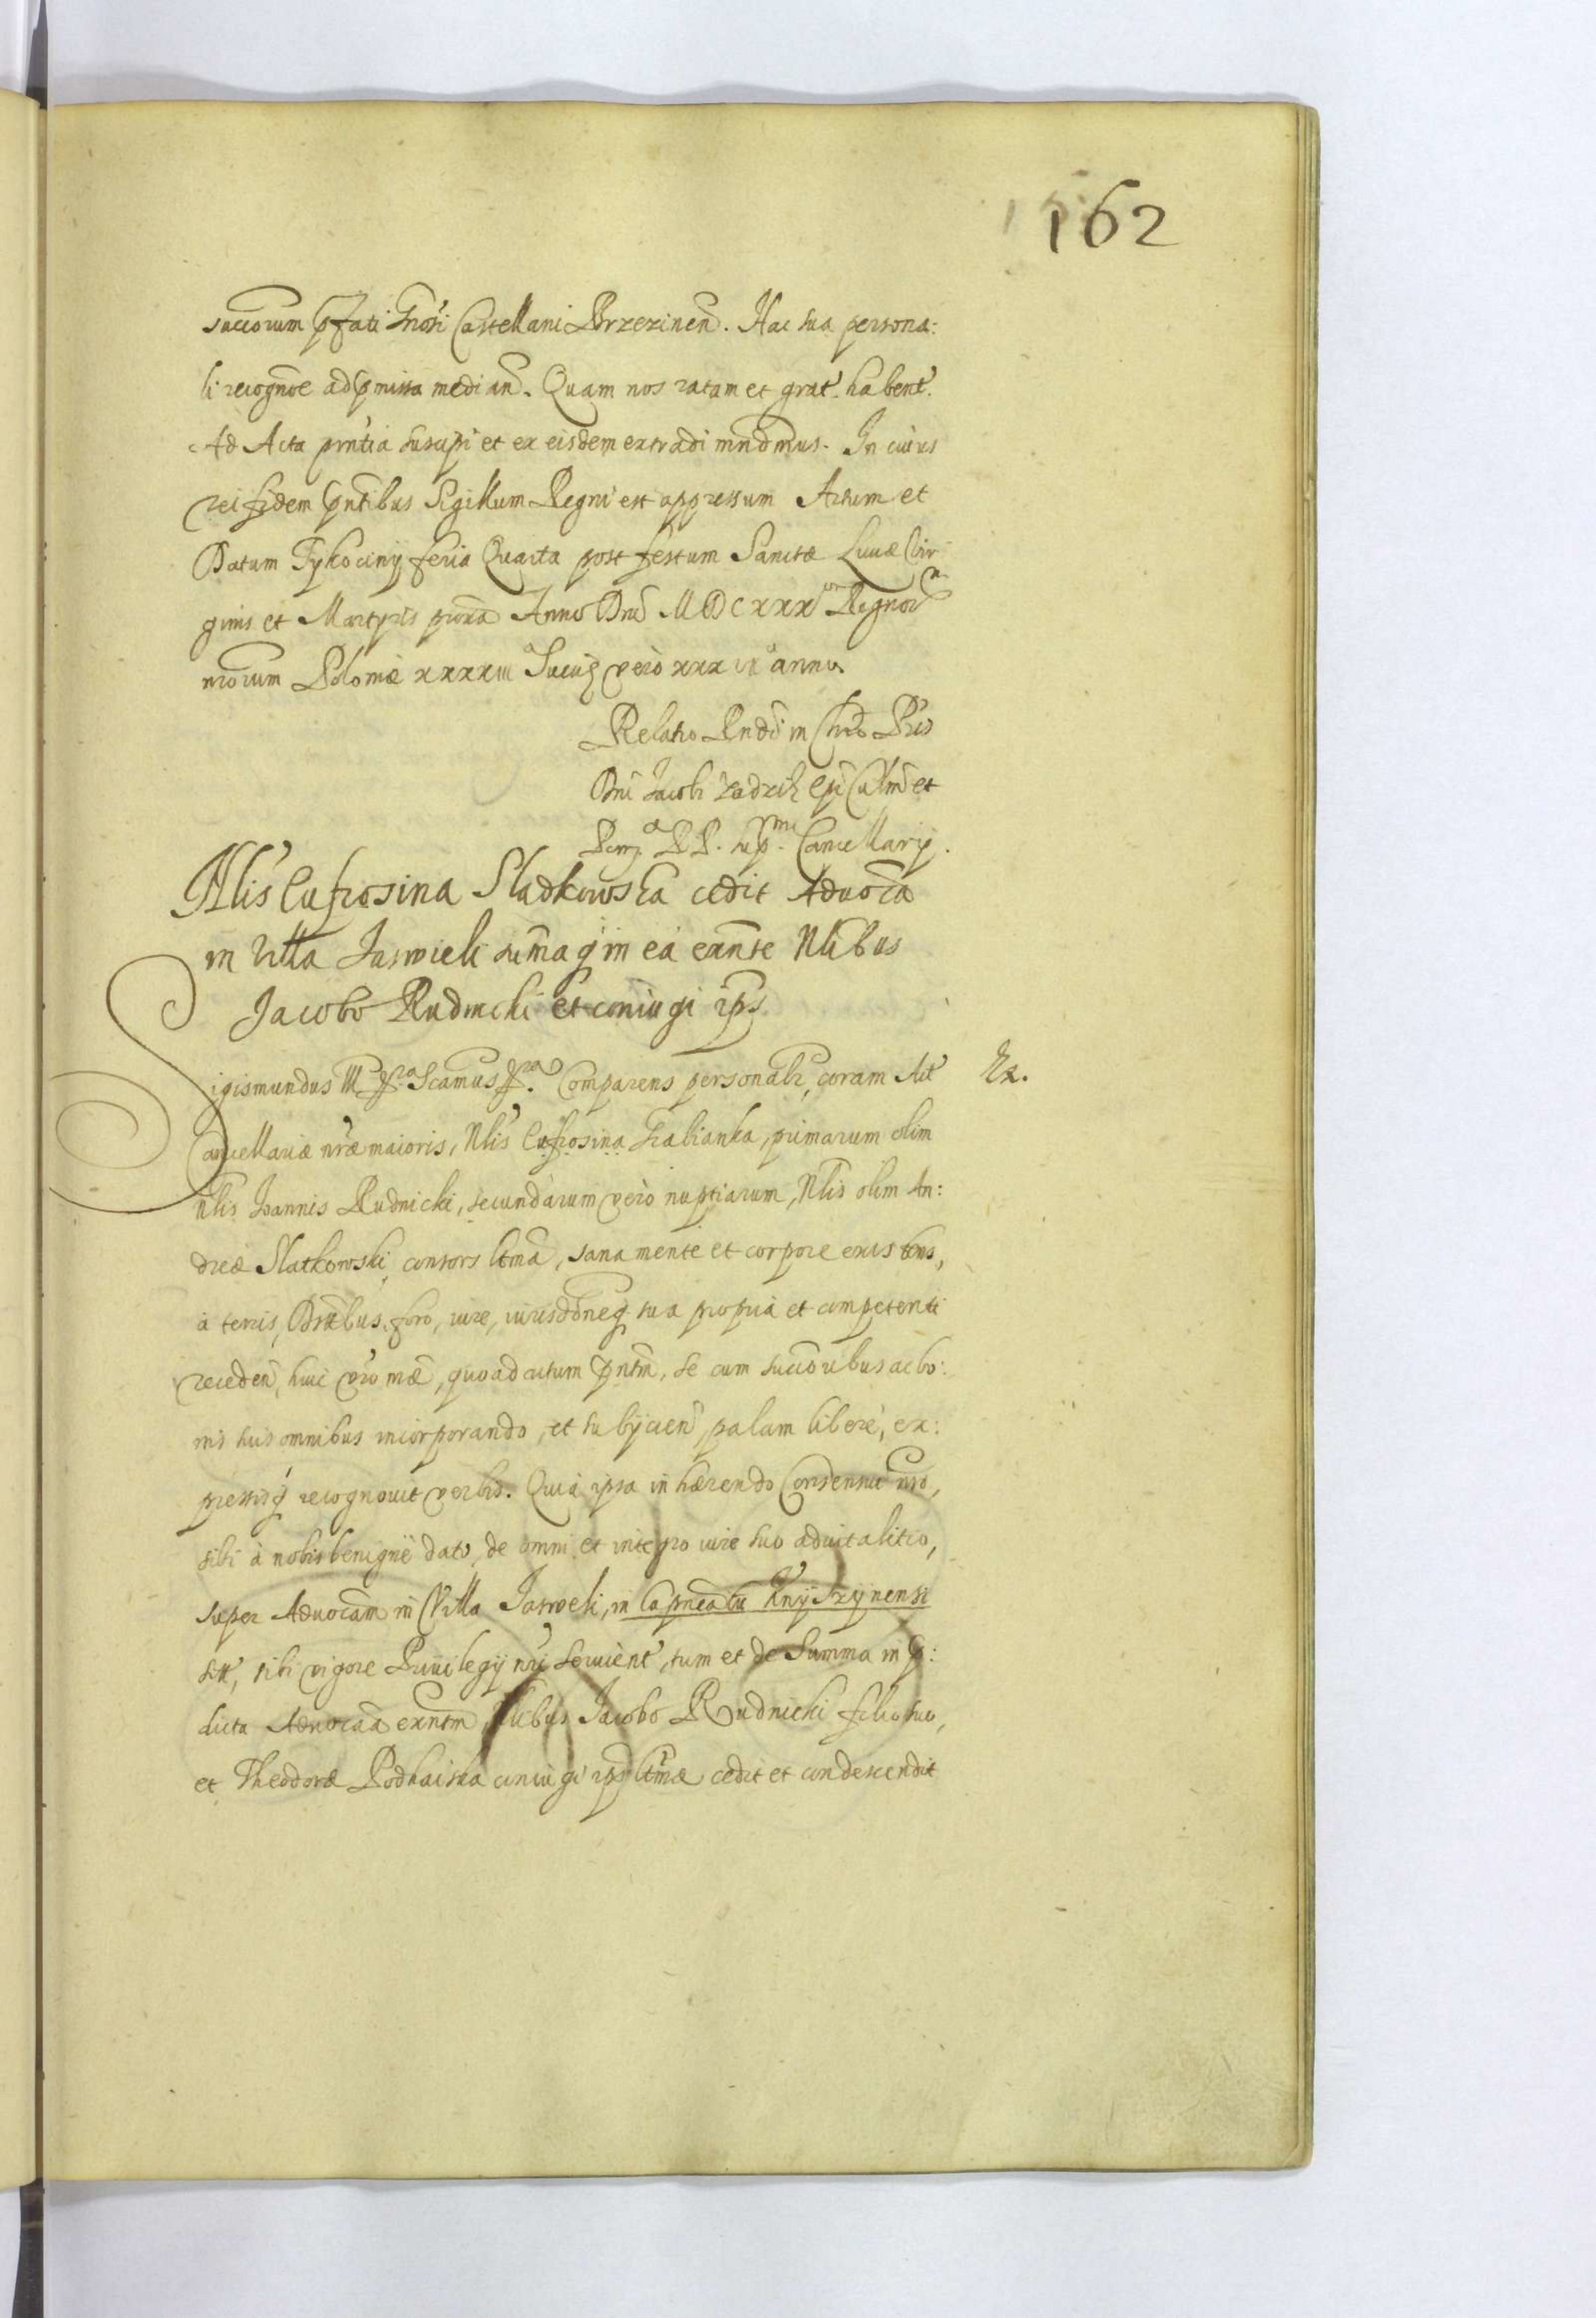 162
succorum pfati Gnosi Castellani Brzezinen. Hac sua persona:
li recognoe ad pmissa median. Quam nos ratam et grat. habent.
Ad Acta pntia suscipi et ex eisdem extradi mndmus. In cuius
rei fidem pntibus Sigillum Regni est appressum Actum et
Datum Tykocinij feria Quarta post festum Sanctæ Luciæ Vir
ginis et Martyris proxa Anno Dni MDCXXX Regnor
nrorum Poloniæ xxxxiii Sueciæ vero xxx vii anno.
Relatio Rndi in Chro Pris
Dni Jacobi Zadzik Epi Culmen et
Pomz. R P. sup. Cancellarij.
Nlis Eufrosina Sladkowska cedit Aduoca
in Villa Jaswieli sumaq in ea exnte Nlibus
Jacobo Rudnicki et coniugi ips
Sigismundus III Scamus Comparens personalr, coram Act Rx.
Cancellariæ nræ maioris, Nlis Eufrosina Grabianka, primarum olim
Nlis Joannis Rudnicki, secundarum vero nuptiarum, Nlis olim An:
dreæ Slatkowski consors ltma, sana mente et corpore existens,
à terris, Dritibus, foro, iure, iurisdoneq sua propria et competenti
receden, huic vro mæ, quoad actum pntm, se cum succoribus ac bo:
nis suis omnibus incorporando, et subijcien, palam libere, ex:
pressisq recognouit verbis. Quia ipsa inhærendo Consensui nro,
sibi à nobis benigne dato, de omni et integro iure suo aduitalitio,
super Aduocam in Villa Jasweli, in Capneatu Knyszynensi
sitt, sibi vigore Priuilegij nri seruient, tum et de Summa in p:
dicta Aduocaa exntem, Nlibus Jacobo Rudnicki filio suo,
et Theodoræ Podhaiska coniugi ips ltmæ cedit et condescendit